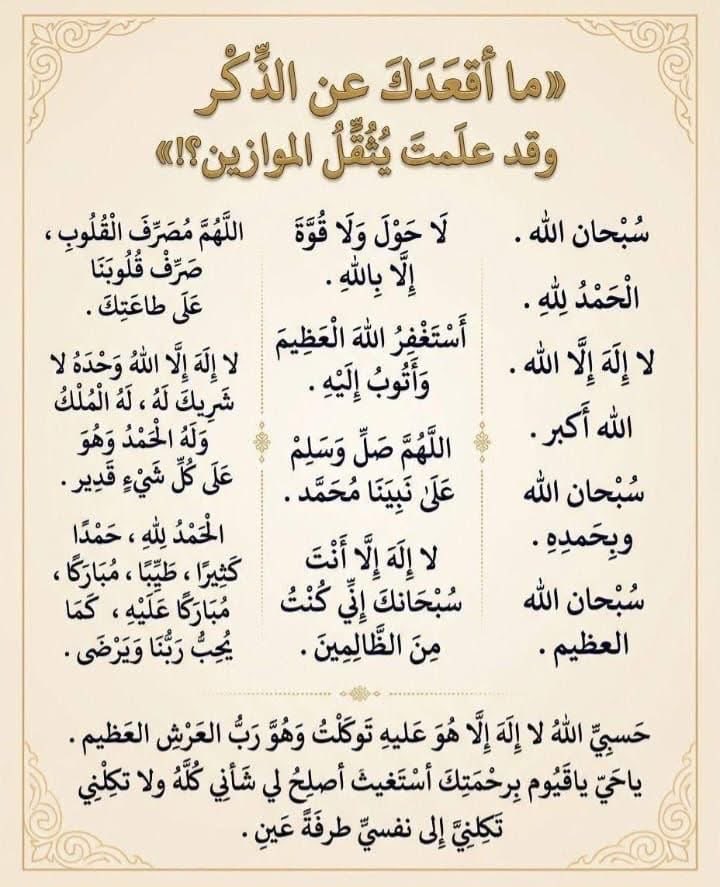 «ما أقعَدَكَ عن الذِّكْر
وقد علَمتَ يُثُقِّلُ الموازين؟!»
سُبْحان الله .
الْحَمْدُ لِلهِ .
لا إِلَهَ إِلَّا الله .
الله أَكبر .
سُبْحان الله
وبِحَمدِهِ .
سُبْحان الله
العظيم .
لَا حَوْلَ وَلَا قُوَّةَ
إِلَّا بِاللهِ .
أَسْتَغْفِرُ اللهَ الْعَظِيمَ
وَأَتُوبُ إِلَيْهِ .
اللَّهُمَّ صَلِّ وَسَلِمْ
عَلَىٰ نَبِيَنَا مُحَمَّد .
لا إِلَهَ إِلَّا أَنْتَ
سُبْحَانكَ إِنِّي كُنْتُ
مِنَ الظَّالِمِينَ .
اللَّهُمَّ مُصَرِّفَ الْقُلُوبِ ،
صَرِّفْ قُلُوبَنَا
عَلَى طاعَتِكَ .
لا إِلَهَ إِلَّا اللهُ وَحْدَهُ لا
شَرِيكَ لَهُ ، لَهُ الْمُلْكُ
وَلَهُ الْحَمْدُ وَهُوَ
عَلَى كُلِّ شَيْءٍ قَدِير .
الْحَمْدُ لِلهِ ، حَمْدًا
كَثِيرًا ، طَيِّبًا ، مُبَارَكًا ،
مُبَارَكًا عَلَيْهِ ، كَمَا
يُحِبُّ رَبُّنَا وَيَرْضَى .
حَسبِيِّ اللهُ لا إِلَهَ إِلَّا هُوَ عَليهِ تَوكَلْتُ وَهُوَّ رَبُّ العَرْشِ العَظِيم .
ياحَيّ ياقَيُوم بِرحْمَتِكَ أسْتَغيثَ أصلِحُ لي شَأنِي كُلَّهُ ولا تكِلْنِي
تَكِلنِيَّ إلى نفسيِّ طرفَةً عَينِ .